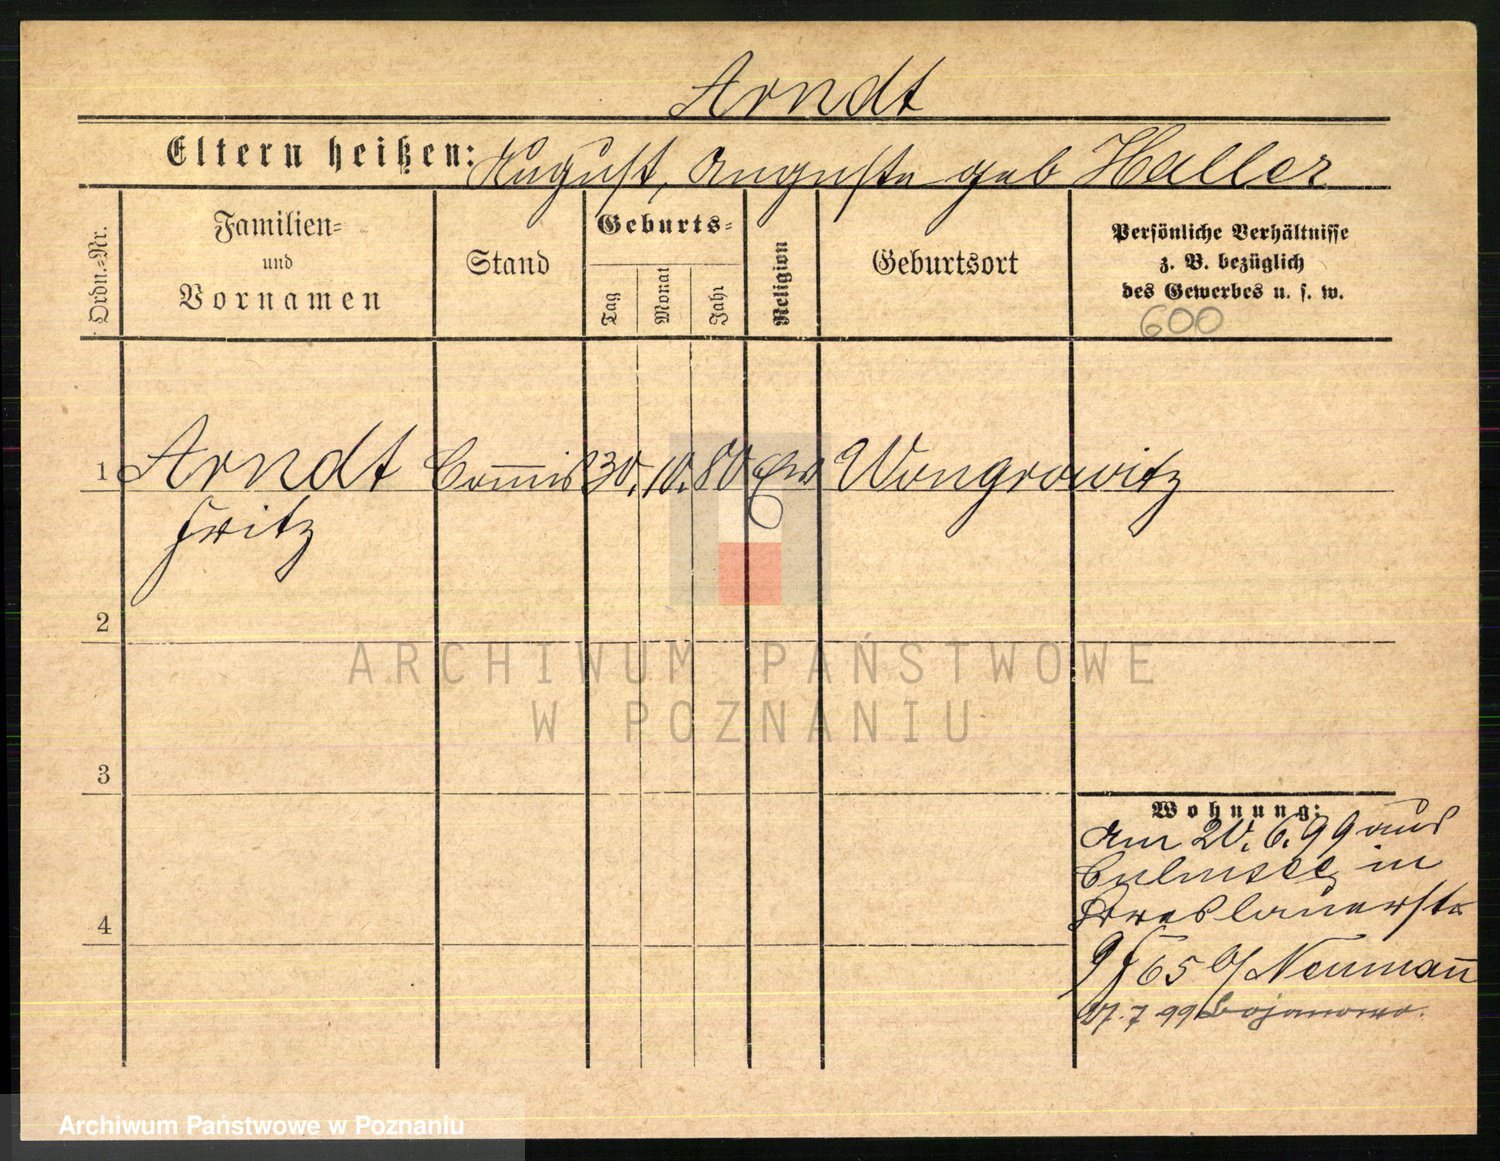 Arndt
Eltern heißen: August, Auguste geb Haller
Ordn.-Nr.
Familien-
und
Vornamen
Stand
Geburts-
Tag
Monat
Jahr
Religion
Geburtsort
Persönliche Verhältnisse
z. B. bezüglich
des Gewerbes u. s. w.
600
1 Arndt Commis 30. 10. 80 Ev Wongrowitz
Fritz
2
ARCHIWUM PAŃSTWOWE
W POZNANIU
3
Wohnung:
Am 20. 6. 99 aus
Culmsee in
Breslauerstr
9 65 b/ Neumann
17. 7 99 Bojanowo.
4
Archiwum Państwowe w Poznaniu